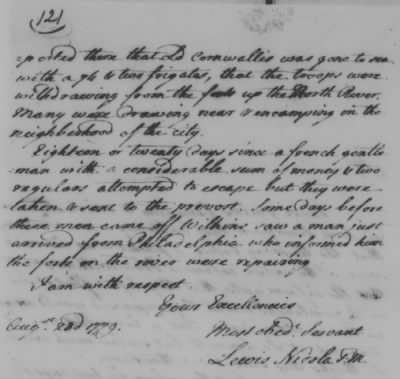 121
reported there that Ld Cornwallis was gone to sea
with a 74 & two frigates, that the troops were
withdrawing from the forts up the North River.
Many were drawing near & encamping in the
neighborhood of the city.
Eighteen or twenty days since a french gentle
man with a considerable sum of money & two
regulars attempted to escape but they were
taken & sent to the provost. Some days before
these men came off Wilkins saw a man just
arrived from Philadelphia who informed him
the forts on the river were repairing
I am with respect
Your Excellencies
Augt. 22d 1779.
Most Obedt. Servant
Lewis Nicola T.M.